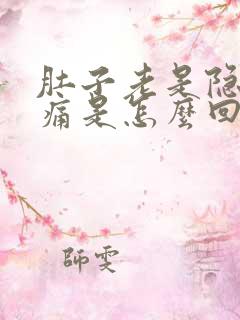 肚子老是隐
痛是怎麼回
師雯